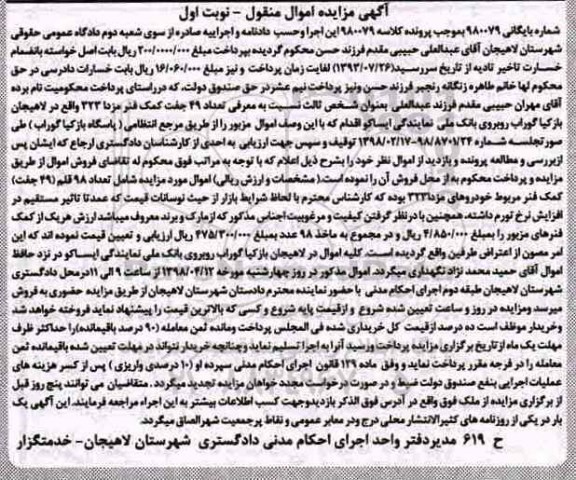 آگهی مزایده اموال منقول - نوبت اول
شماره بایگانی ۹۸۰۰۷۹ بموجب پرونده کلاسه ۹۸۰۰۷۹ این اجرا وحسب دادنامه و اجراییه صادره از سوی شعبه دوم دادگاه عمومی حقوقی
شهرستان لاهیجان آقای عبدالعلی حبیبی مقدم فرزند حسن محکوم گردیده بپرداخت مبلغ ۲۰۰/۰۰۰/۰۰۰ ریال بابت اصل خواسته بانضمام
خسارت تاخیر تادیه از تاریخ سررسید(۱۳۹۳/۰۷/۲۶) لغایت زمان پرداخت و نیز مبلغ ۱۶/۰۶۰/۰۰۰ ریال بابت خسارات دادرسی در حق
محکوم لها خانم طاهره زنگانه رنجبر فرزند حسن ونیز پرداخت نیم عشر در حق صندوق دولت، که در راستای پرداخت محکومیت نام برده
آقای مهران حبیبی مقدم فرزند عبدالعلی بعنوان شخص ثالث نسبت به معرفی تعداد ۴۹ جفت کمک فنر مزدا ۳۲۳ واقع در لاهیجان
بازکیا گوراب روبروی بانک ملی نمایندگی ایساکو اقدام که با این وصف اموال مزبور را از طریق مرجع انتظامی ( پاسگاه بازکیا گوراب ) طی
صورتجلسه شماره ۹۸/۸۷۰۱/۲۴-۱۳۹۸/۰۲/۱۷ توقیف و سپس جهت ارزیابی به احدی از کارشناسان دادگستری ارجاع که ایشان پس
ازبررسی و مطالعه پرونده و بازدید از اموال نظر خود را بشرح ذیل اعلام که با توجه به مراتب فوق محکوم له تقاضای فروش اموال از طریق
مزایده و پرداخت محکوم به از محل فروش آن را نموده است.( مشخصات و ارزش ریالی) اموال مورد مزایده شامل تعداد ۹۸ قلم (۴۹ جفت)
کمک فنر مربوط خودروهای مزدا۳۲۳ بوده که کارشناس محترم با لحاظ شرایط بازار از حیث نوسانات قیمت که عمدتا تاثیر مستقیم در
افزایش نرخ تورم داشته، همچنین با در نظر گرفتن کیفیت و مرغوبیت اجناس مذکور که از مارک و برند معروف میباشد ارزش هریک از کمک
فنرهای مزبور را بمبلغ ۴/۸۵۰/۰۰۰ ریال و در مجموع به ماخذ ۹۸ عدد بمبلغ ۴۷۵/۳۰۰/۰۰۰ ریال ارزیابی و تعیین قیمت نموده اند که این
امر مصون از اعتراض طرفین واقع گردیده است. کلیه اموال در لاهیجان بازکیا گوراب روبروی بانک ملی نمایندگی ایساکو در نزد حافظ
اموال آقای حمید محمد نژاد نگهداری میگردد. اموال مذکور در روز چهارشنبه مورخه ۱۳۹۸/۰۴/۱۲ از ساعت ۹ الی ۱۱ درمحل دادگستری
شهرستان لاهیجان طبقه دوم اجرای احکام مدنی با حضور نماینده محترم دادستان شهرستان لاهیجان از طریق مزایده حضوری به فروش
میرسد ومزایده در روز و ساعت تعیین شده شروع و ازقیمت پایه شروع و کسی که بالاترین قیمت را پیشنهاد نماید فروخته خواهد شد
وخریدار موظف است ده درصد ازقیمت کل خریداری شده فی المجلس پرداخت ومانده ثمن معامله (۹۰ درصد باقیمانده)را حداکثر ظرف
مهلت یک ماه از تاریخ برگزاری مزایده پرداخت ورسید آنرا به اجرا تسلیم نماید و چنانچه خریدار نتواند در مهلت تعیین شده باقیمانده ثمن
معامله را در فرجه مقرر پرداخت نماید و وفق ماده ۱۲۹ قانون اجرای احکام مدنی سپرده او (۱۰ درصدی واریزی ) پس از کسر هزینه های
عملیات اجرایی بنفع صندوق دولت ضبط و در صورت درخواست مجدد خواهان مزایده تجدید میگردد . متقاضیان می توانند پنج روز قبل
از برگزاری مزایده از ملک فوق واقع در آدرس فوق الذکر بازدید وجهت کسب اطلاعات بیشتر به این اجراء مراجعه فرمایند. این آگهی یک
بار در یکی از روزنامه های کثیرالانتشار محلی درج ودر معابر عمومی و نقاط پرجمعیت شهر الصاق میگردد.
ح ۶۱۹ مدیردفتر واحد اجرای احکام مدنی دادگستری شهرستان لاهیجان- خدمتگزار